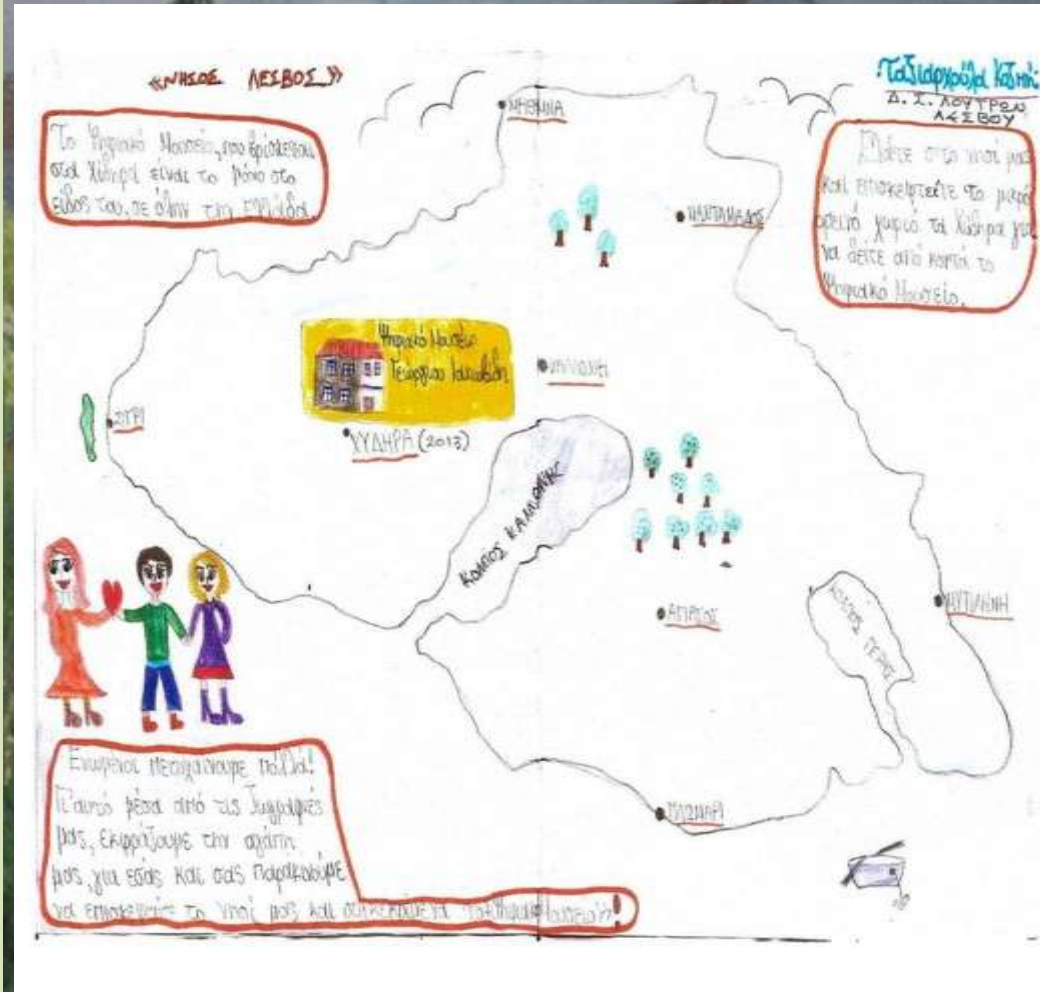 «ΝΗΣΟΣ ΛΕΣΒΟΣ»
Ταξιαρχούλα
Δ. Σ. ΛΟΥΤΡΩΝ
ΛΕΣΒΟΥ
Το Ψηφιακό Μουσείο, που βρίσκεται
στα Χύδηρα είναι το μόνο στο
είδος του, σε όλην την Ελλάδα.
Ελάτε στο νησί μας
και επισκεφτείτε το μικρό
ορεινό χωριό τα Χύδηρα για
να δείτε από κοντά το
Ψηφιακό Μουσείο.
ΜΗΘΥΜΝΑ
ΜΑΝΤΑΜΑΔΟΣ
Ψηφιακό Μουσείο
Γεώργιου Ιακωβίδη
ΚΑΛΛΟΝΗ
ΣΙΓΡΙ
ΧΥΔΗΡΑ (2013)
ΚΟΛΠΟΣ ΚΑΛΛΟΝΗΣ
ΑΓΙΑΣΟΣ
ΚΟΛΠΟΣ ΓΕΡΑΣ
ΜΥΤΙΛΗΝΗ
ΠΛΩΜΑΡΙ
Ενωμένοι πετυχαίνουμε πολλά!
Γι'αυτό μέσα από τις ζωγραφιές
μας, εκφράζουμε την αγάπη
μας, για εσάς και σας παρακαλούμε
να επισκεφτείτε το νησί μας και συγκεκριμένα